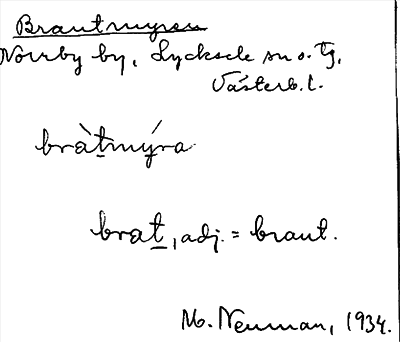 Brautmyran
Norrby by, Lycksele sn o. tg,
Västerb. l.
bràtmýra
brat, adj. = braut.
M. Neuman, 1934.